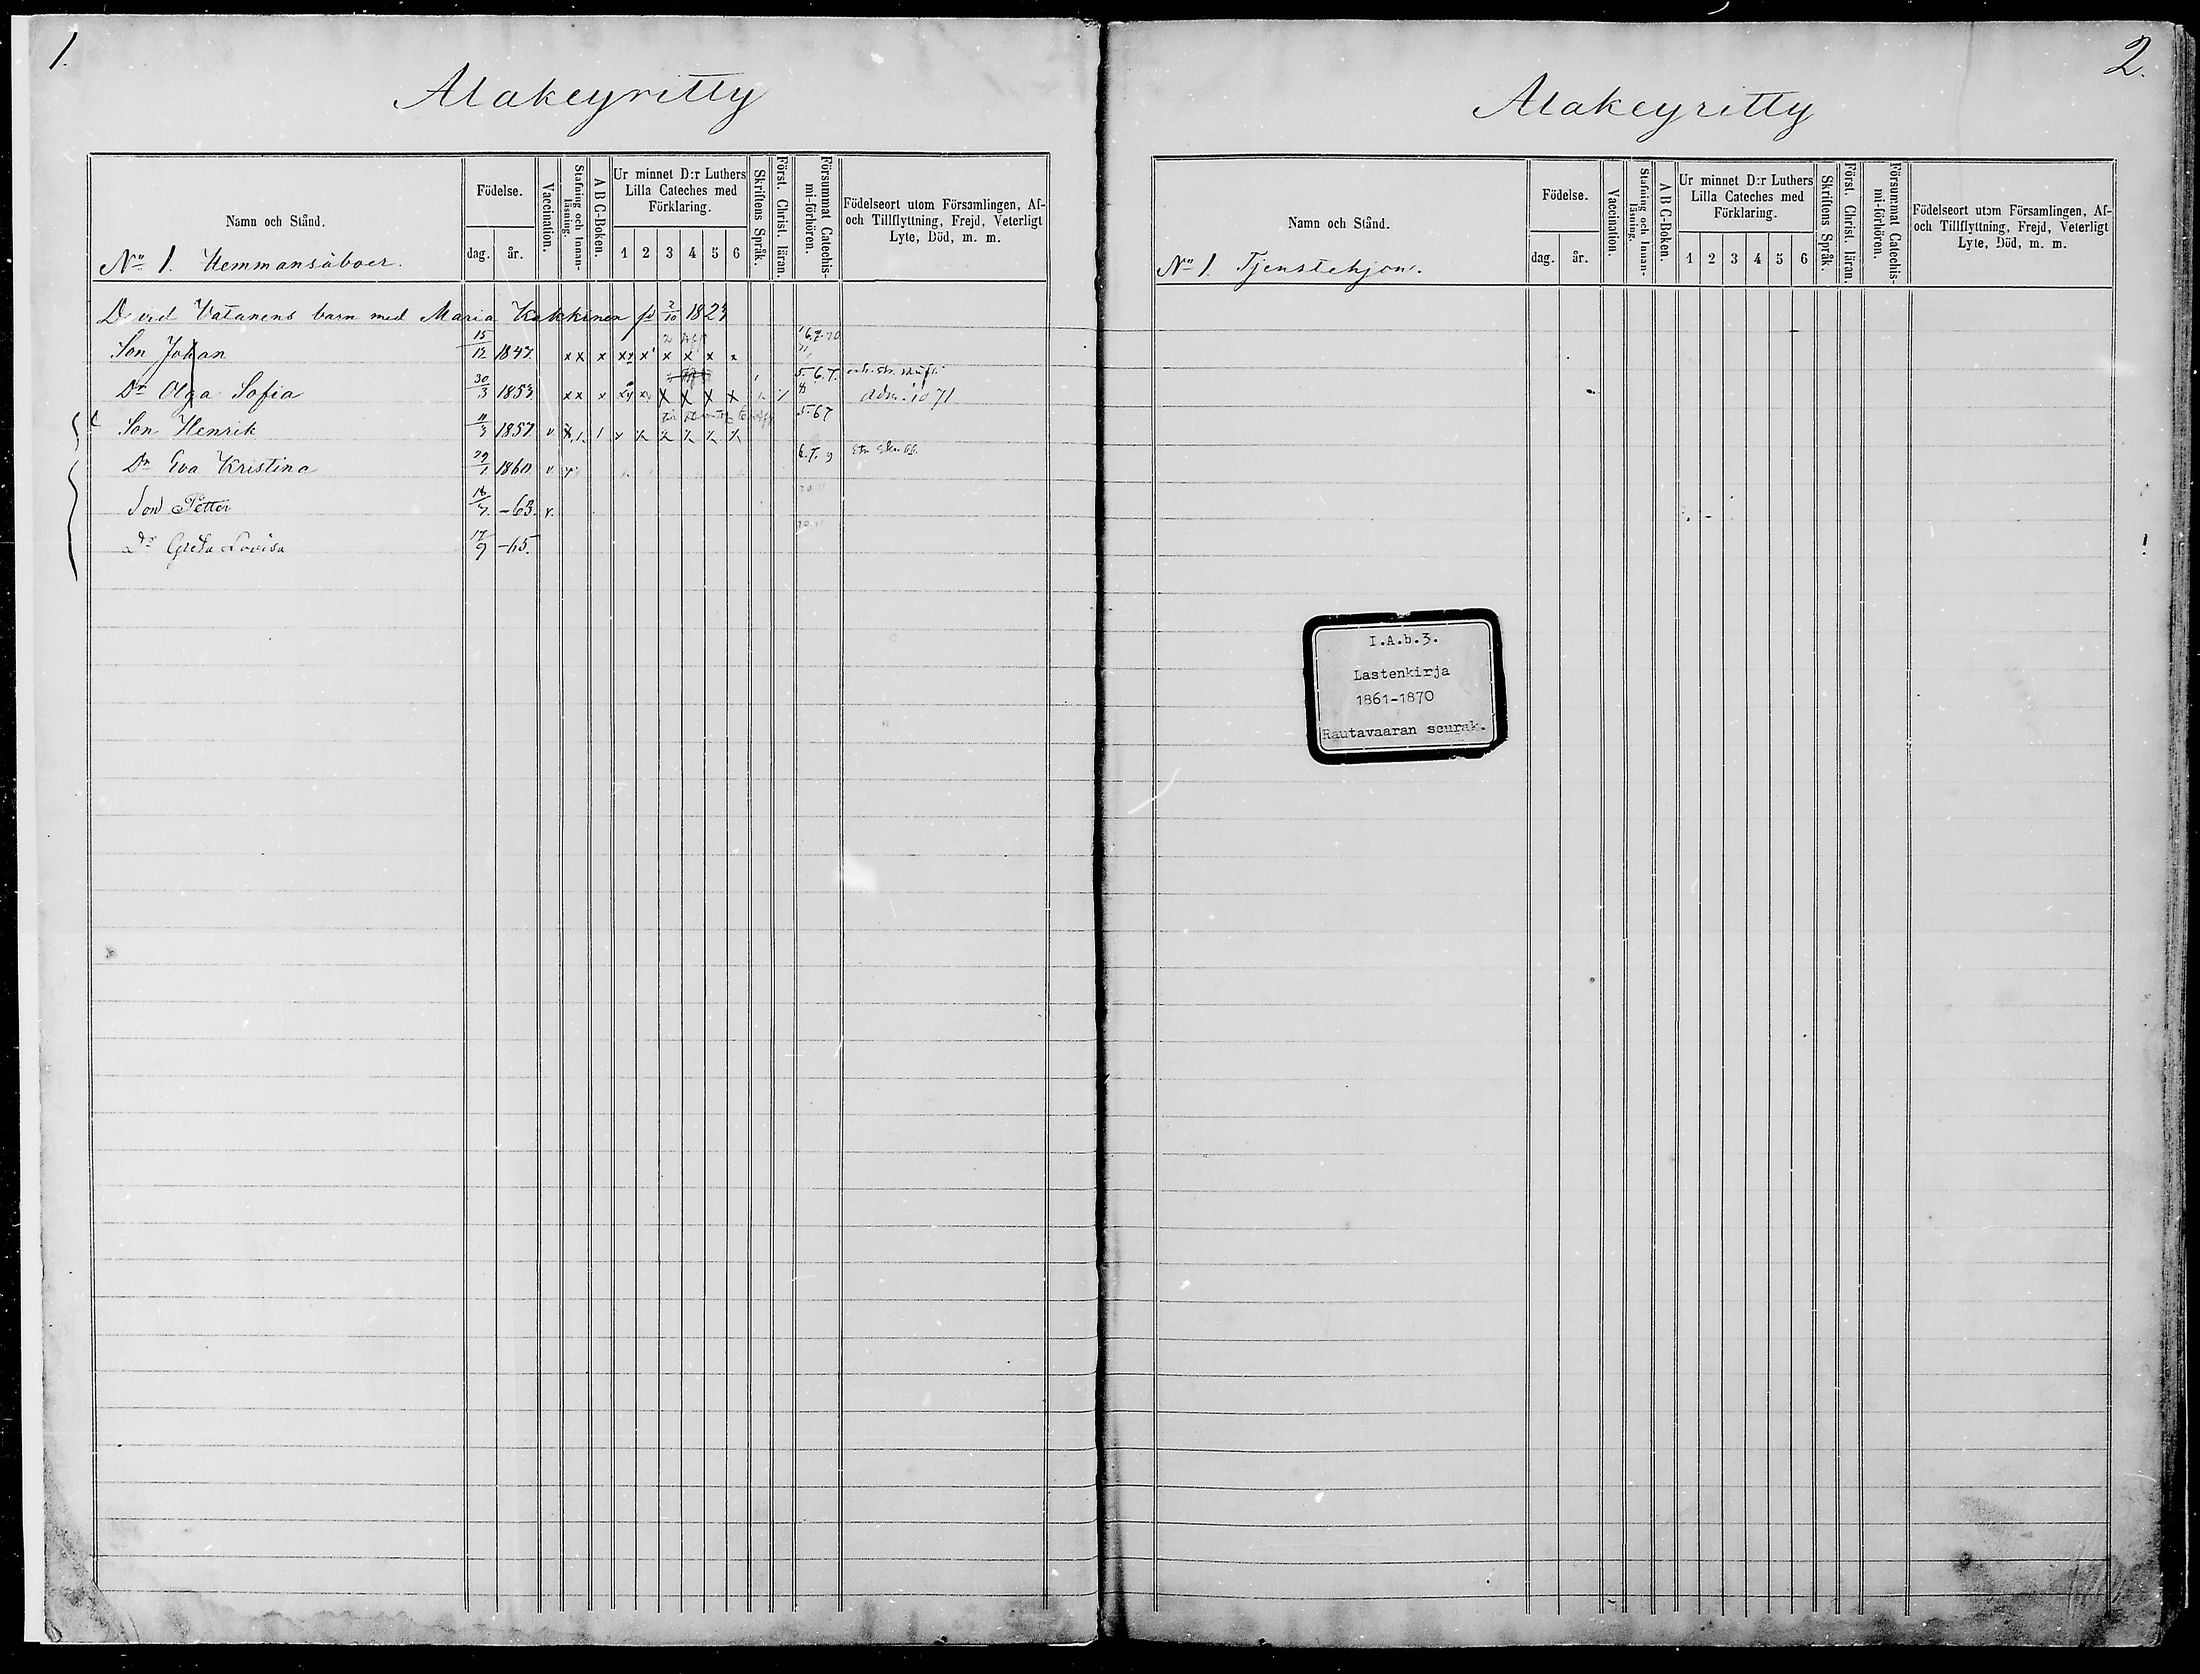 1.
Alakeyritty
Namn och Stånd.
Födelse.
dag. år.
Vaccination.
Stafning och Innanläsning.
A B C-Boken.
Ur minnet D:r Luthers
Lilla Cateches med
Förklaring.
1 2 3 4 5 6
Skriftens Språk.
Först. Christ. läran.
Försummat Catechismi-förhören.
Födelseort utom Församlingen, Af-
och Tillflyttning, Frejd, Veterligt
Lyte, Död, m. m.
No 1. Hemmansåboer.
David Vatanens barn med Maria Kakkinen fd 2/10 1824
Son Johan 15/12 1847. x x x x x x x
Dr Olga Sofia 30/3 1853 x x x x x x x 5.6.7. 1871
Son Henrik 11/3 1857 v. 5.67
Dr Eva Kristina 29/1 1860 v.
Son Petter 18/7 -63. v.
Dr Greta Lovisa 17/9 -65.
2.
Alakeyritty
Namn och Stånd.
Födelse.
dag. år.
Vaccination.
Stafning och Innanläsning.
A B C-Boken.
Ur minnet D:r Luthers
Lilla Cateches med
Förklaring.
1 2 3 4 5 6
Skriftens Språk.
Först. Christ. läran.
Försummat Catechismi-förhören.
Födelseort utom Församlingen, Af-
och Tillflyttning, Frejd, Veterligt
Lyte, Död, m. m.
No 1. Tjenstehjon.
I.A.b.3.
Lastenkirja
1861-1870
Rautavaaran seurak.